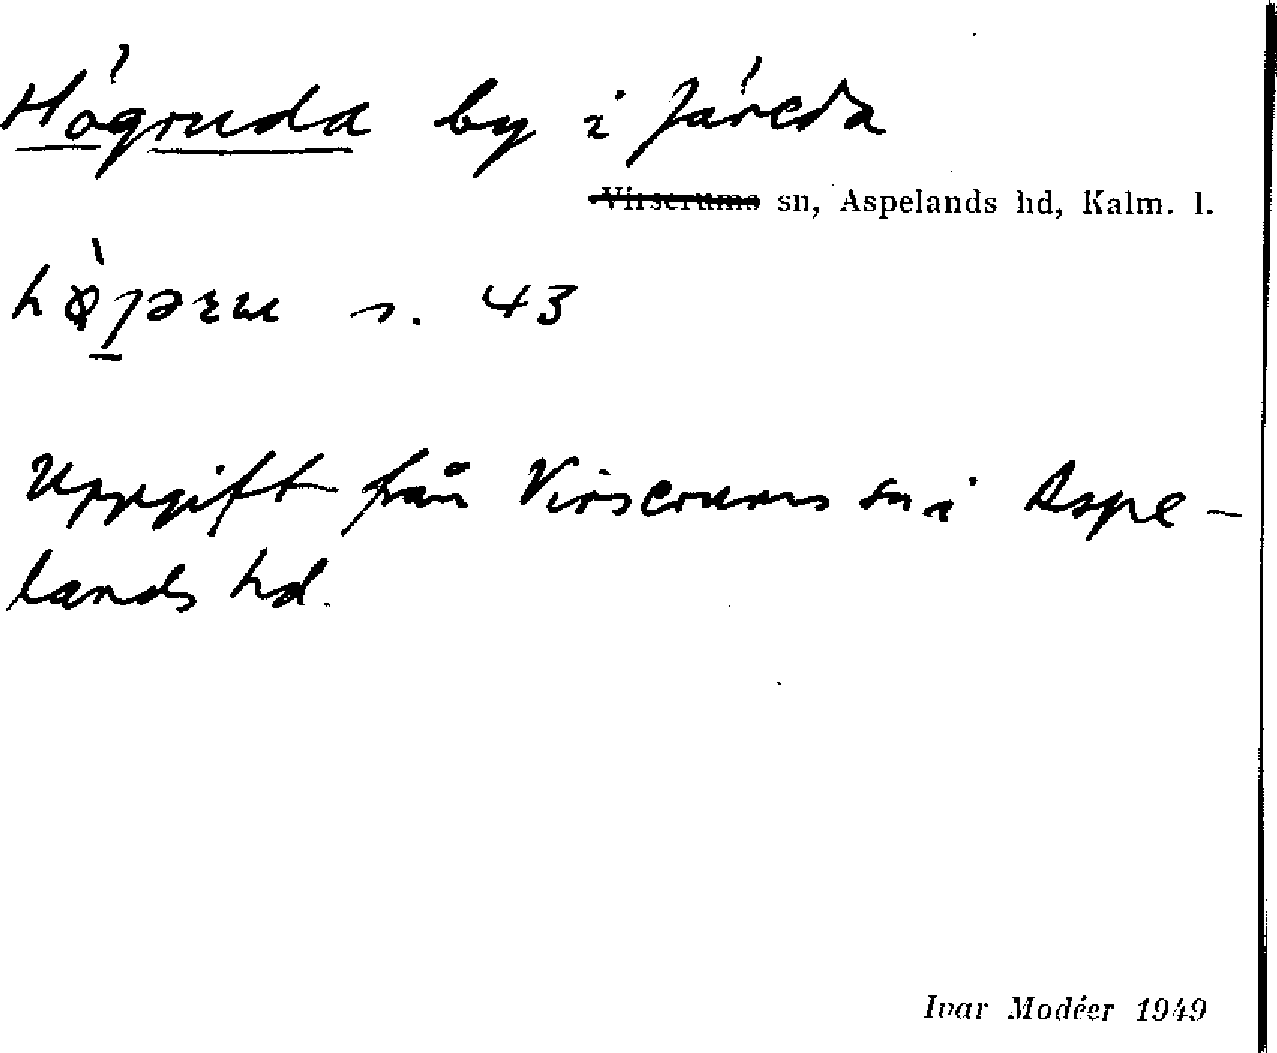 Högruda by i Järeda
Virserums sn, Aspelands hd, Kalm. l.
s. 43
Uppgift från Virserums sn i Aspe-
lands hd.
Ivar Modéer 1949